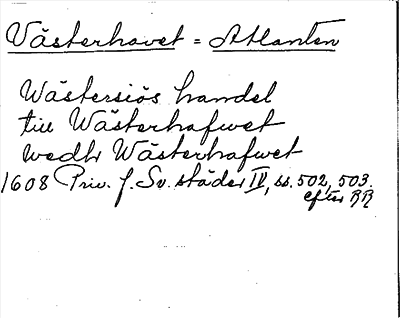 Västerhavet = Atlanten
Wästersiös handel
till Wästerhafwet
wedh Wästerhafwet
1608 Priv. f. Sv. städer IV, ss. 502, 503.
efter RR